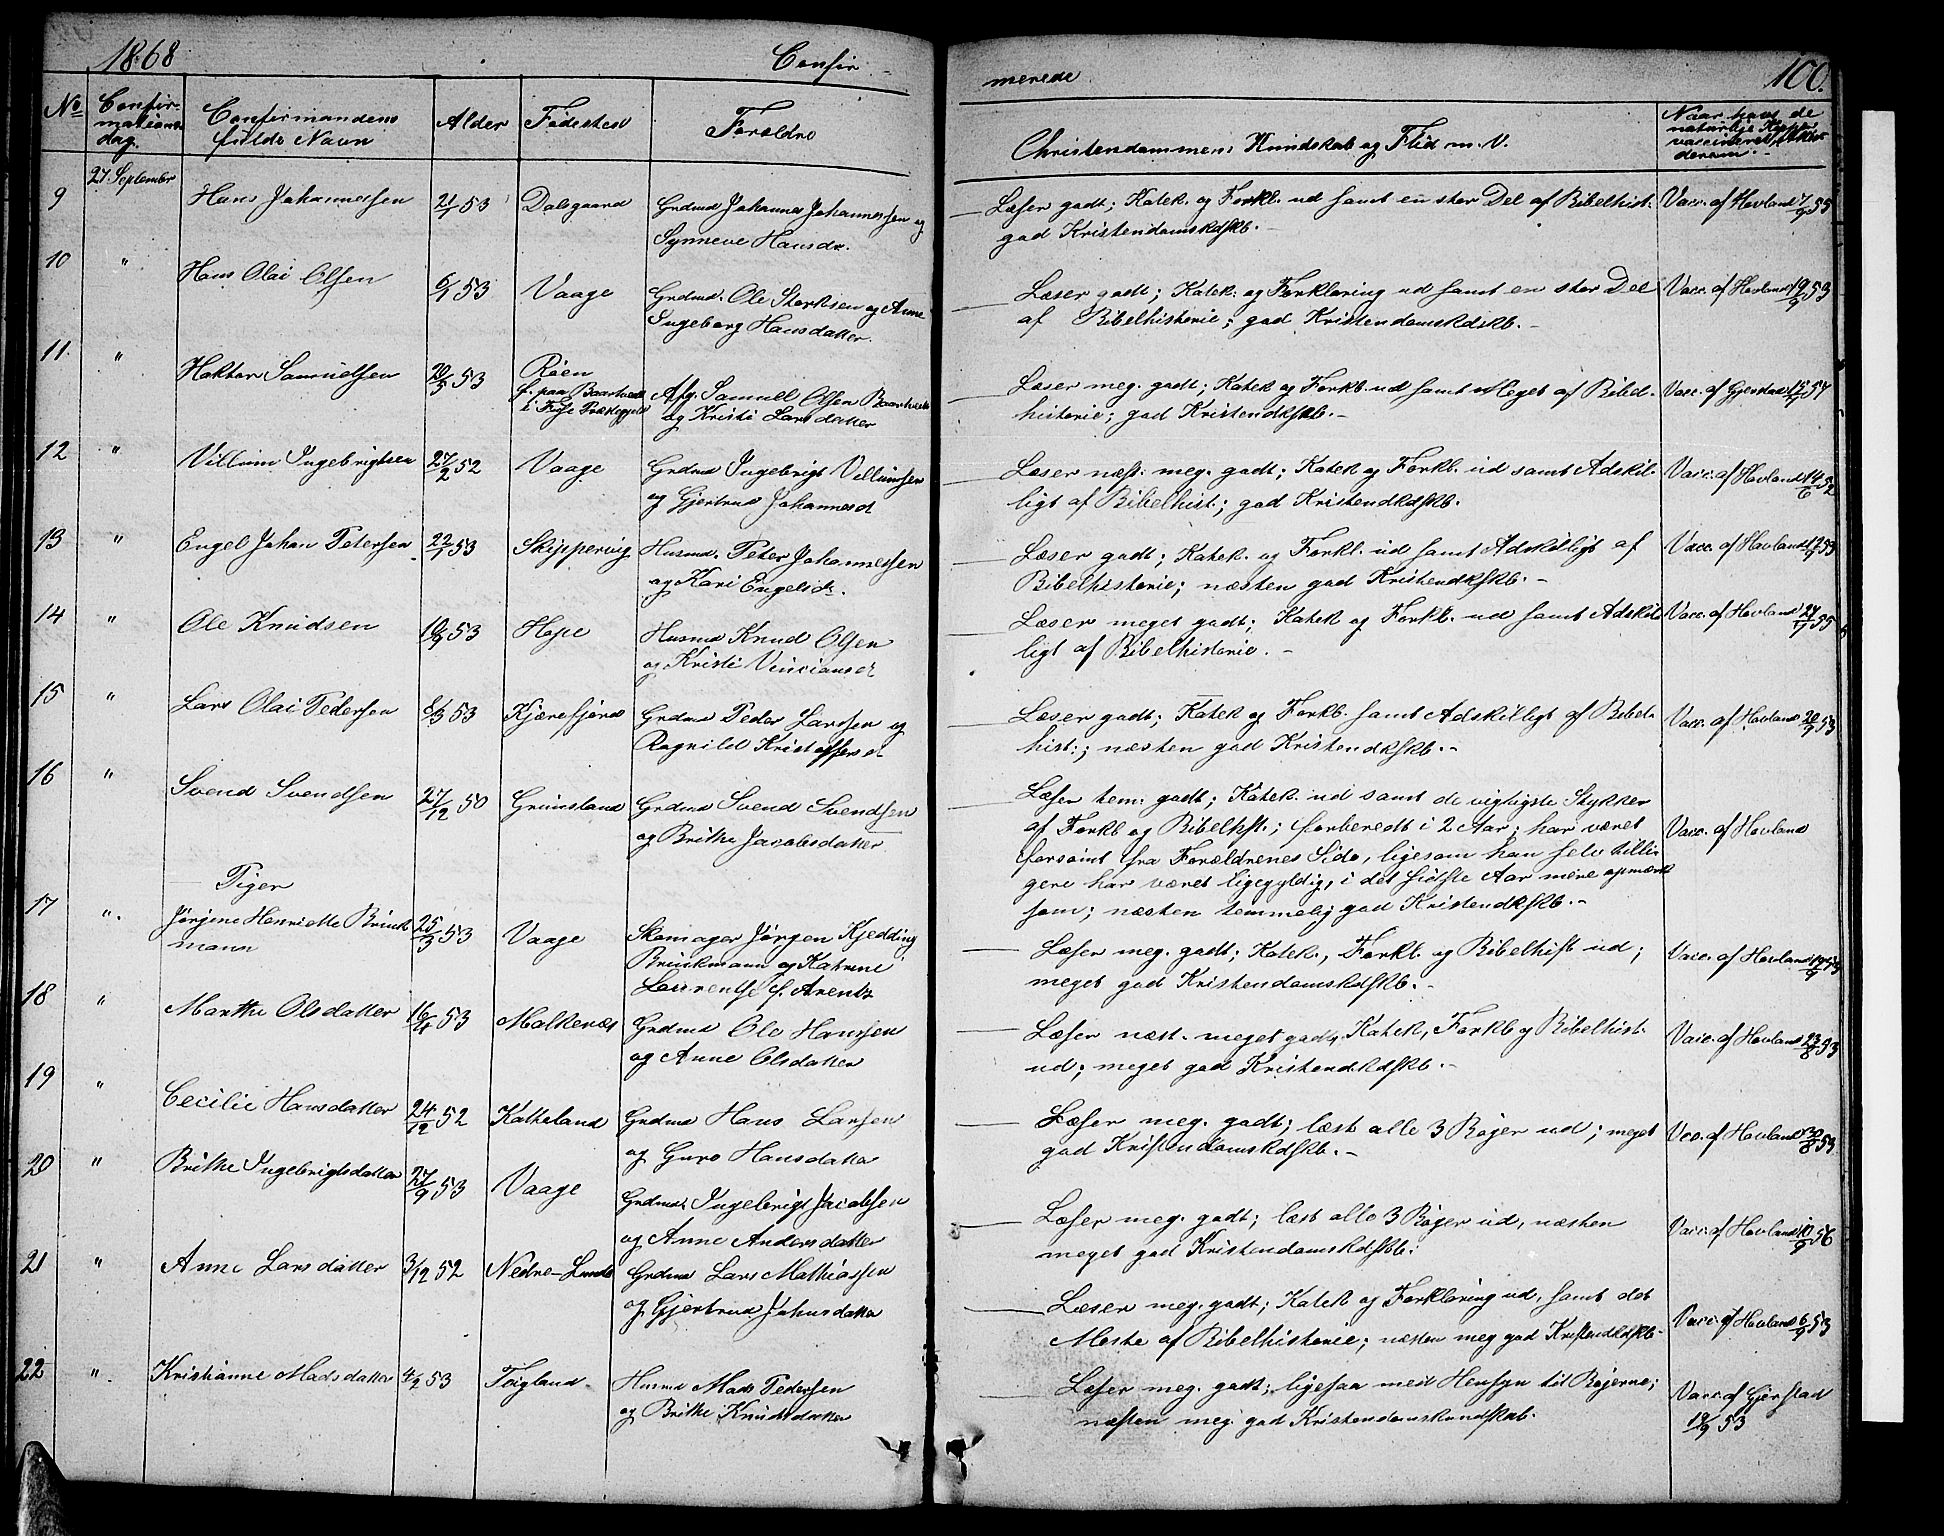 1868
Confir-
merede
100.
No
Confir-
mations
dag.
Confirmandens
fulde Navn
Alder
Fødested
Forældre
Christendommens Kundskab og Flid m. V.
Naar havt de
naturlige Kopper
vaccineret
27 September
9
Hans Johannessen
21/1 53
Dalegaard
Grdmd Johannes Johannessen og
Synneve Hansdr.
Læser godt; Katek. og Forkl. ud samt en stor Del af Bibelhist.
god Kristendomskdskb. -
Vacc. af Hovland 7/9 55
10
"
Hans Olai Olsen
6/1 53
Vaage
Grdmd. Ole Sterksen og Anne
Ingeborg Hansdatter.
Læser godt; Katek. og Forklaring ud samt en stor Del
af Bibelhistorie; god Kristendomskdskb. -
Vacc. af Hovland 19/9 53
11.
"
Hektor Samuelsen
20/5 53
Røen
f. paa Baartvedt
i Fuse Præstegjeld
Afg. Samuel Olsen Baartvedt
og Kristi Larsdatter
Læser meg. godt; Katek og Forkl. ud samt Meget af Bibel-
historie; god Kristendkskb. -
Vacc. af Gjerstad
12
"
Villum Ingebrigtsen
27/2 52
Vaage
Grdmd Ingebrigt Villumsen
og Gjertrud Johannesd
Læser næst. meg. godt; Katek og Forkl. ud samt Adskil-
ligt af Bibelhist.; god Kristendkdskb.
Vacc. af Hovland 14/6 52
13
"
Engel Johan Petersen
22/1 53
Skippervig
Husmd. Peter Johannessen
og Kari Engelsdr.
Læser godt; Katek. og Forkl. ud samt Adskilligt af
Bibelhistorie; næsten god Kristendkskb. -
Vacc. af Hovland 19/9 53
14
"
Ole Knudsen
10/9 53
Hope
Husmd Knud Olsen
og Kristi
Læser meget godt; Katek og Forkl. ud samt Adskil-
ligt af Bibelhistorie. -
Vacc. af Hovland 55
15
"
Lars Olai Pedersen
8/3 53
Kjærefjord
Grdmd Peder Larssen og
Ragnild Kristoffersd
Læser godt; Katek og Forkl. samt Adskilligt af Bibel-
hist.; næsten god Kristendkskb. -
Vacc. af Hovland 20/9 53
16
"
Svend Svendsen
27/12 50
Grimsland
Grdmd Svend Svendsen
og Brithe Jacobsdatter
Læser tem. godt; Katek. ud samt de vigtigste Stykker
af Forkl og Bibelhst.; forberedt i 2 Aar; har været
forsømt fra Forældrenes Side, ligesom han selv tidli-
gere har været ligegyldig, i det sidste Aar mere opmærk
som; næsten temmelig god Kristendkskb. -
Vacc. af Hovland
Piger
17
".
Jørgine Henriette Brink
mann
25/3 53
Vaage
Skomager Jørgen Kjedding
Brinkmann og Katrine
Laurentse f. Arentz
Læser meg. godt; Katek., Forkl. og Bibelhist ud;
meget god Kristendomskdskb. -
Vacc. af Hovland 19/9 53
18
"
Marthe Olsdatter
53
Malkenæs
Grdmd Ole Hanssen
og Anne Olsdatter
Læser næst. meget godt, Katek, Forkl og Bibelhist.
ud; meget god Kristendkdskb. -
Vacc. af Hovland 23/8 53
19
"
Cecilie Hansdatter
24/12 52
Katteland
Grdmd Hans Larsen
og Guro Hansdatter
Læser meg. godt; læst alle 3 Bøger ud; meget
god Kristendomskdskb. -
Vcc. af Hovland 30/8 53
20
"
Brithe Ingebrigtsdatter
27/9 53
Vaage
Grdmd. Ingebrigt Jacobsen
og Anne Andersdatter
Læser meg. godt; læst alle 3 Bøger ud, næsten
meget god Kristendomskdskb.
Vacc. af Hovland 56
21
"
Anne Larsdatter
3/12 52
Nedre-Lunde
Grdmd Lars Mathiassen
og Gjertrud Johnsdatter
Læser meg. godt; Katek og Forklaring ud, samt det
Meste af Bibelhistorie; næsten meg god Kristendkdskb-
Vacc. af Hovland 6/9 53
22
".
Kristianne Madsdatter
4/2 53
Toigland
Husmd Mads Pedersen
og Brithe Knudsdatter
Læser meg. godt; ligesaa med Hensyn til Bøgerne;
næsten meg. god Kristendomskundskab.
Vacc. af Gjerstad
19/9 53